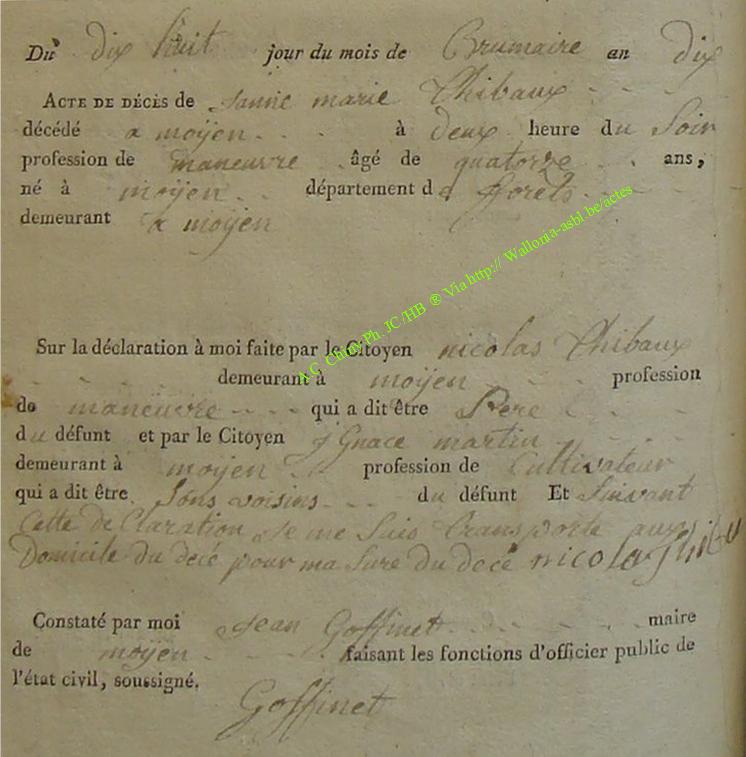 Du dix huit jour du mois de Brumaire an dix
ACTE DE DÉCÈS de Janne marie Thibaux
décédé a moÿen à deux heure du Soir
profession de maneuvre âgé de quatorze ans,
né à moÿen département de forêts
demeurant a moÿen
A.C. Chiny Ph. JC/HB ® Via http:// Wallonia-asbl.be/actes
Sur la déclaration à moi faite par le Citoyen nicolas Thibaux
demeurant à moÿen profession
de maneuvre qui a dit être Pere
du défunt et par le Citoyen Jgnace martin
demeurant à moÿen profession de Cultivateur
qui a dit être Sons voisins du défunt Et Suivant
Cette de Claration Je me Suis transporte aux
Domicile du decé pour ma Sure du decé nicolas
Constaté par moi Jean Goffinet maire
de moÿen faisant les fonctions d'officier public de
l'état civil, soussigné.
Goffinet